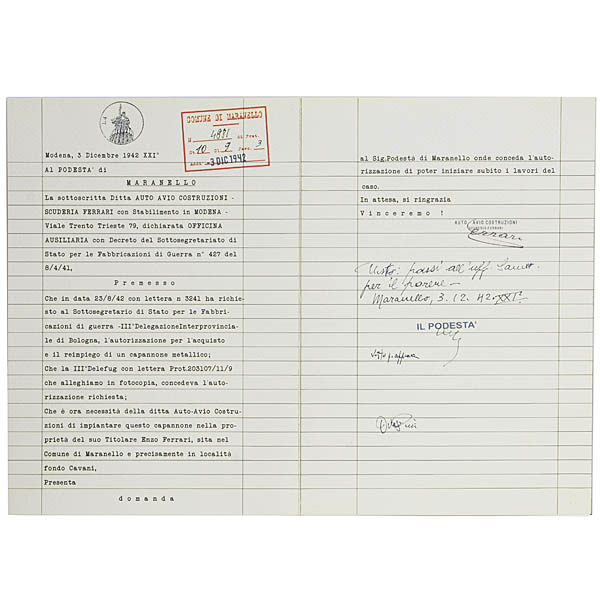 COMUNE DI MARANELLO
N 4881 di Prot.
Cat. 10 Cl. 9 Fasc. 3
Addì -3 DIC 1942
Modena, 3 Dicembre 1942 XXI°
Al PODESTA' di
MARANELLO
La sottoscritta Ditta AUTO AVIO COSTRUZIONI -
SCUDERIA FERRARI con Stabilimento in MODENA -
Viale Trento Trieste 79, dichiarata OFFICINA
AUSILIARIA con Decreto del Sottosegretariato di
Stato per le Fabbricazioni di Guerra n° 427 del
8/4/41,
Premesso
Che in data 23/8/42 con lettera n 3241 ha richie-
sto al Sottosegretario di Stato per le Fabbri-
cazioni di guerra -III°DelegazioneInterprovincia-
le di Bologna, l'autorizzazione per l'acquisto
e il reimpiego di un capannone metallico;
Che la III°Delefug con lettera Prot.203107/11/9
che alleghiamo in fotocopia, concedeva l'auto-
rizzazione richiesta;
Che è ora necessità della ditta Auto-Avio Costru-
zioni di impiantare questo capannone nella pro-
prietà del suo Titolare Enzo Ferrari, sita nel
Comune di Maranello e precisamente in località
fondo Cavani,
Presenta
domanda
al Sig.Podestà di Maranello onde conceda l'auto-
rizzazione di poter iniziare subito i lavori del
caso.
In attesa, si ringrazia
Vinceremo !
AUTO AVIO COSTRUZIONI
SCUDERIA FERRARI
Ferrari
Visto: passi all'uff.
per il parere -
Maranello, 3. 12. 42. XXI°
IL PODESTA'